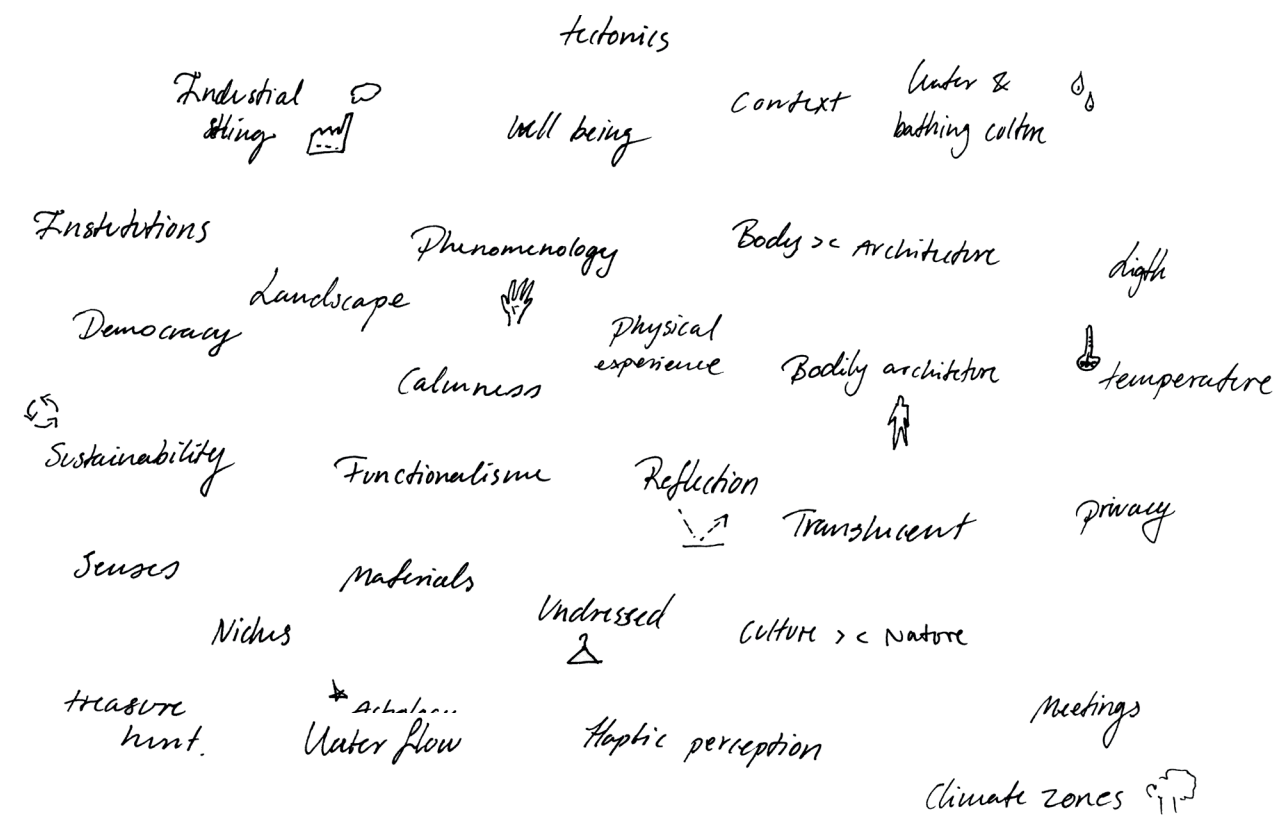 tectonics
Industial
sttling
well being
Context
Water &
bathing cultur
Institutions
Phenomenology
Body >< Architecture
Ligth
Landscape
Democracy
Physical
experience
Calmness
Bodily architeture
temperature
Sustainability
Functionalisme
Reflection
Translucent
privacy
Senses
Materials
Undressed
Niches
Culture >< Nature
treasure
hunt.
Water flow
Haptic perception
Meetings
Climate zones